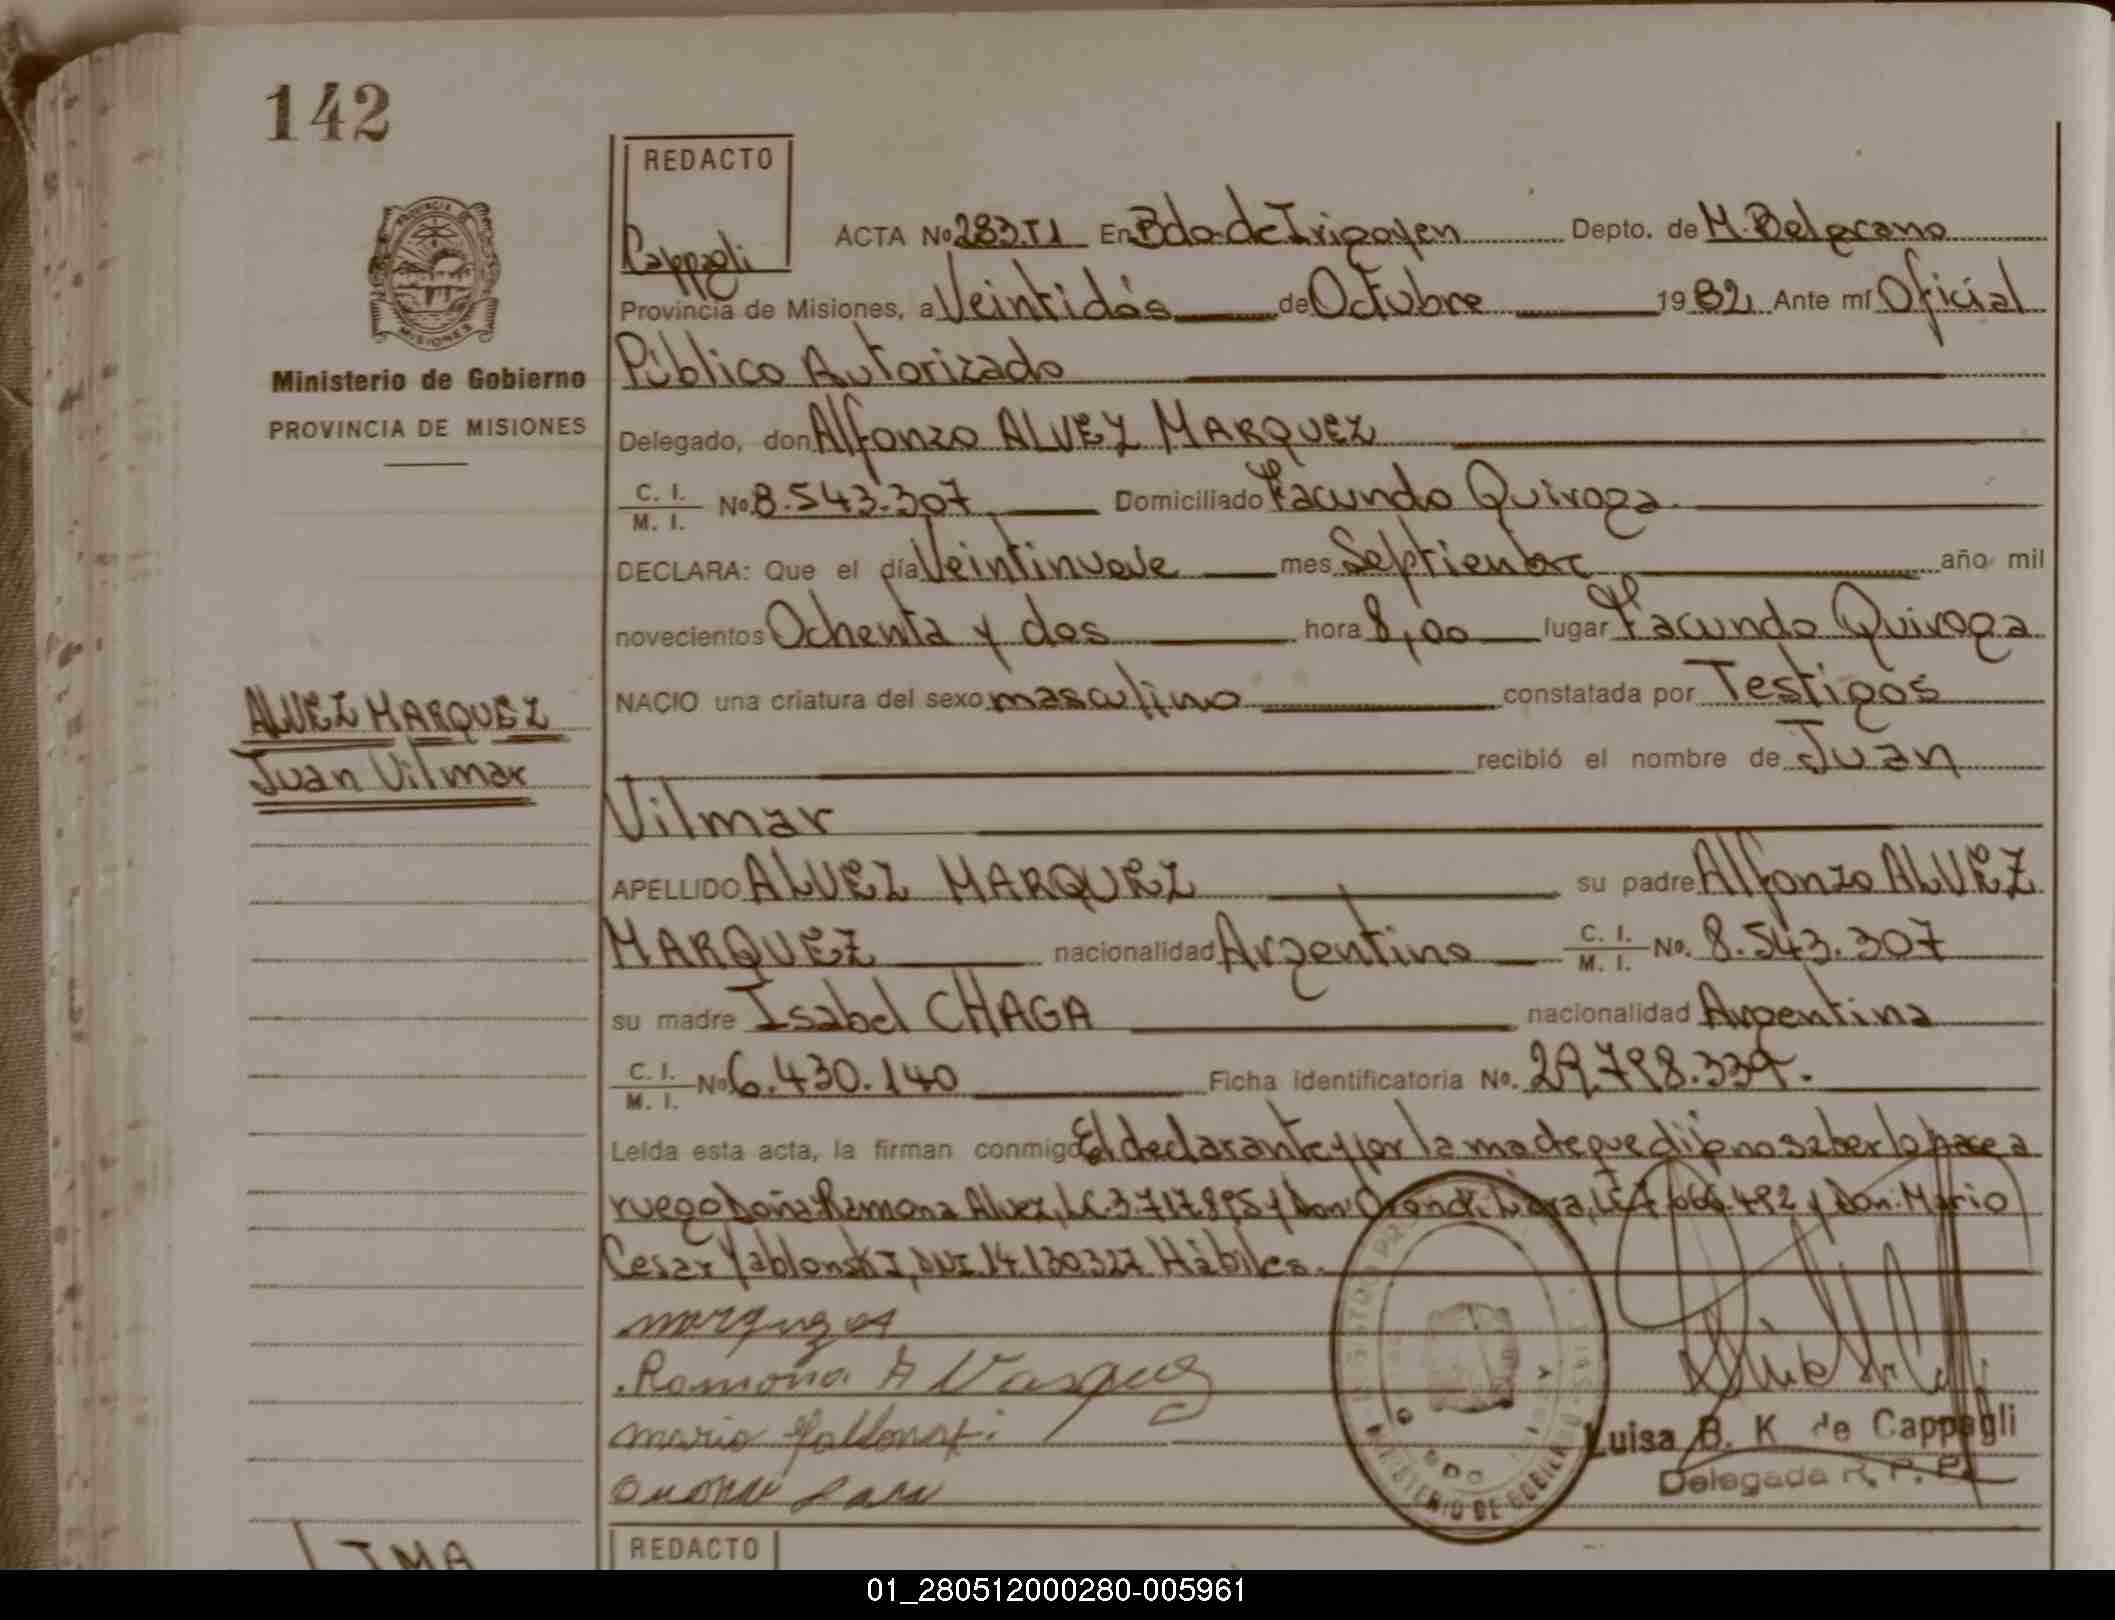 142
REDACTO
Cappagli
ACTA Nº 283.T1 En Bdo. de Irigoyen Depto. de M. Belgrano
Provincia de Misiones, a Veintidós de Octubre 1982 Ante mí Oficial
Público Autorizado
Delegado, don Alfonzo ALVEZ MARQUEZ
C. I.
M. I. Nº 8.543.307 Domiciliado Facundo Quiroga.
DECLARA: Que el día Veintinueve mes Septiembre año mil
novecientos Ochenta y dos hora 8,00 lugar Facundo Quiroga
NACIO una criatura del sexo masculino constatada por Testigos
recibió el nombre de Juan
Vilmar
APELLIDO ALVEZ MARQUEZ su padre Alfonzo ALVEZ
MARQUEZ nacionalidad Argentino C. I. M. I. Nº. 8.543.307
su madre Isabel CHAGA nacionalidad Argentina
C. I.
M. I. Nº 6.430.140 Ficha identificatoria Nº. 29.798.339.
Leída esta acta, la firman conmigo El declarante y por la madre que dijo no saber lo hace a
ruego Doña Ramona Alvez, L.C. 3.717.895 y Don y Don. Mario
Cesar Yablonski, DNI. 14.130.327 Hábiles.
Ramona A Vasquez
mario
Luisa B. K de Cappagli
Delegada R. P. P.
PROVINCIA DE
MISIONES
Ministerio de Gobierno
PROVINCIA DE MISIONES
ALVEZ MARQUEZ
Juan Vilmar
MINISTERIO DE GOBIERNO
REDACTO
01_280512000280-005961